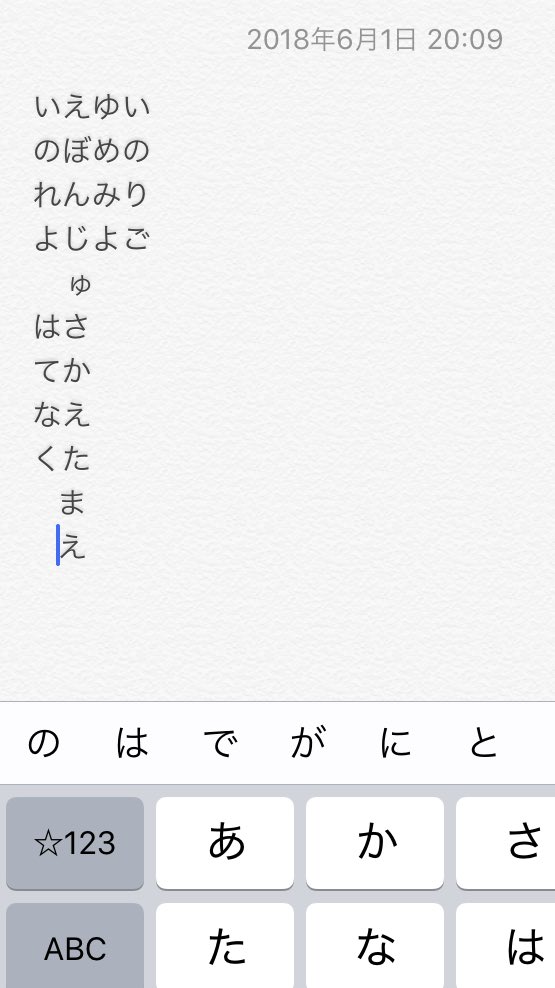 2018年6月1日 20:09
いえゆい
のぼめの
れんみり
よじよご
ゅ
はさ
てか
なえ
くた
ま
え
の は で が に と
☆123 あ か さ
ABC た な は